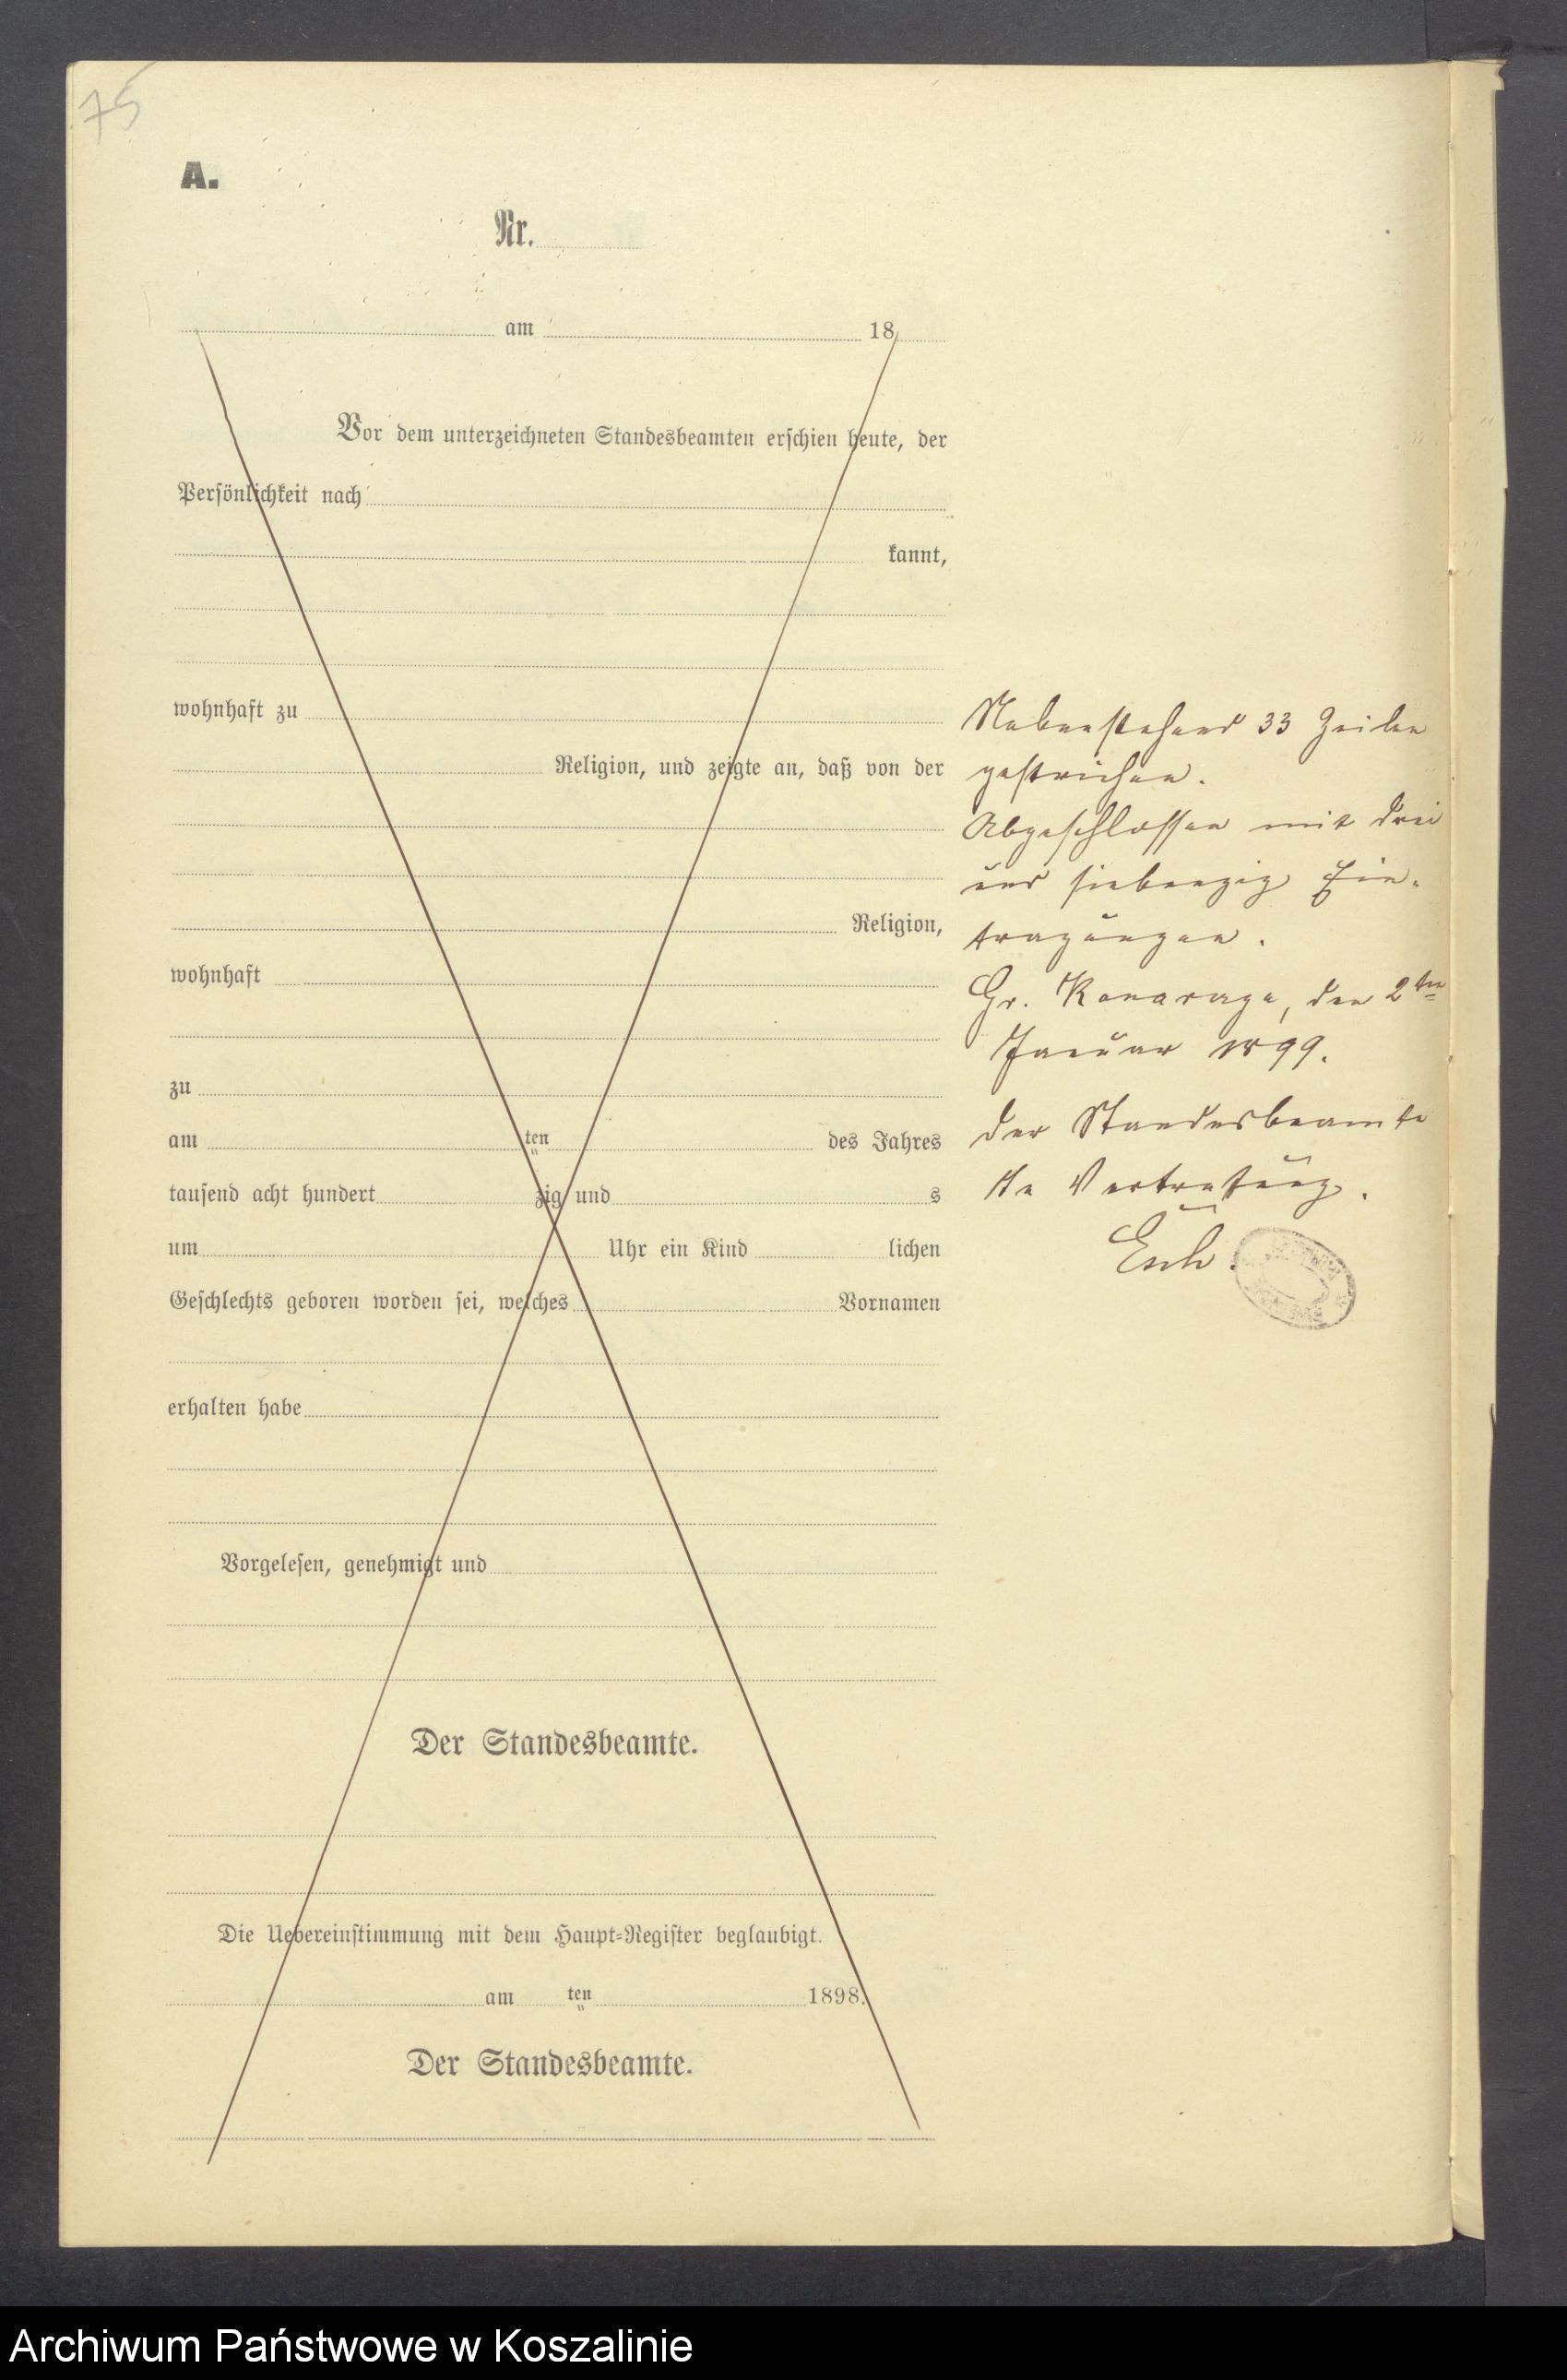 75
A.
Nr.
am 18
Vor dem unterzeichneten Standesbeamten erschien heute, der
Persönlichkeit nach
kannt,
wohnhaft zu
Religion, und zeigte an, daß von der
Religion,
wohnhaft
zu
am ten des Jahres
tausend acht hundert zig und s
um Uhr ein Kind lichen
Geschlechts geboren worden sei, welches Vornamen
erhalten habe
Vorgelesen, genehmigt und
Der Standesbeamte.
Die Uebereinstimmung mit dem Haupt-Register beglaubigt.
am ten 1898.
Der Standesbeamte.
Nebenstehend 33 Zeilen
gestrichen.
Abgeschlossen mit drei
und siebenzig Ein-
tragungen.
Gr. den 2ten
Januar 1899.
Der Standesbeamte
In Vertretung.
Archiwum Państwowe w Koszalinie